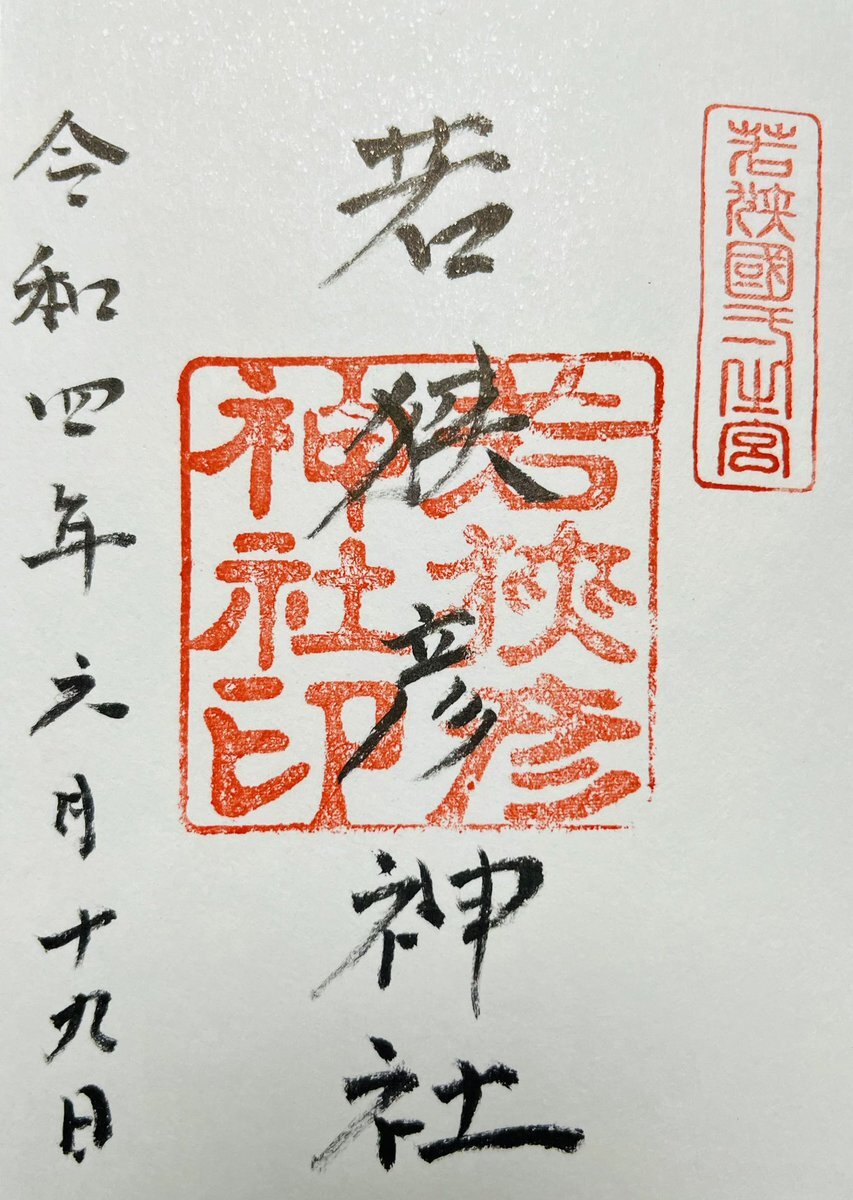 若狭國一之宮
若狭彦神社
若狭彦
神社印
令和四年六月十九日